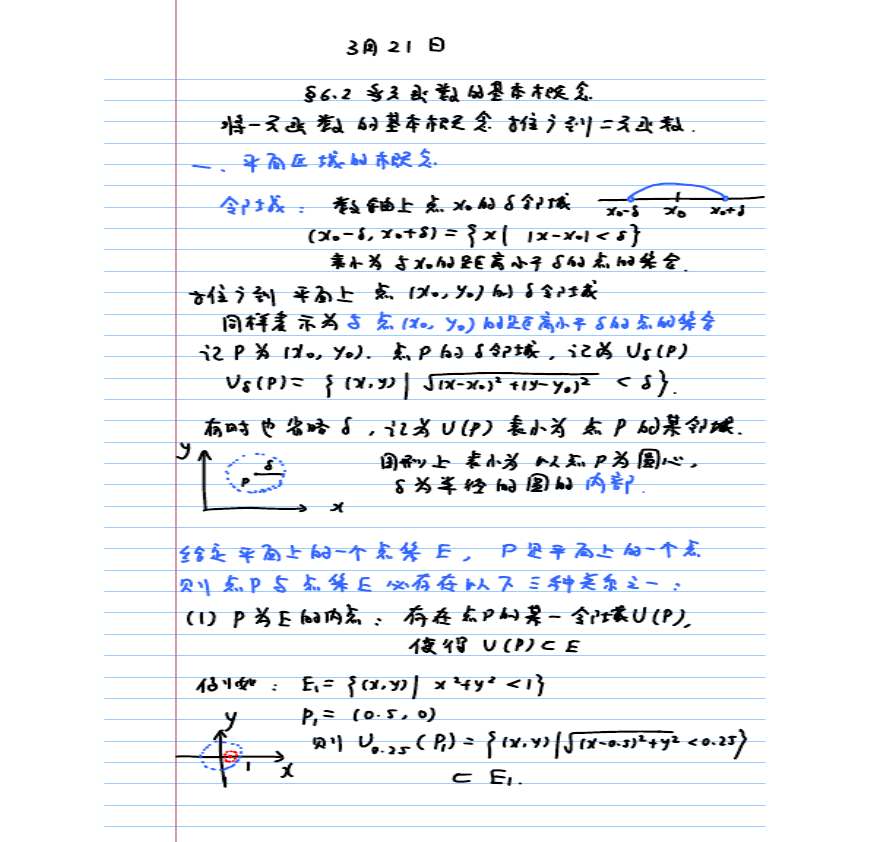 3月21日
§6.2 多元函数的基本概念.
将一元函数的基本概念推广到二元函数.
一、平面区域的概念
邻域: 数轴上点x₀的δ邻域
x₀-δ x₀ x₀+δ
(x₀-δ, x₀+δ) = {x| |x-x₀| < δ}
表示为与x₀的距离小于δ的点的集合.
推广到平面上点(x₀, y₀)的δ邻域
同样表示为与点(x₀, y₀)的距离小于δ的点的集合
记P为(x₀, y₀). 点P的δ邻域, 记为 U_δ(P)
U_δ(P) = {(x,y)| √((x-x₀)²+(y-y₀)²) < δ}.
有时也省略δ, 记为U(P)表示为点P的某邻域.
y
图形上表示为以点P为圆心,
δ
P
δ为半径的圆的内部.
x
给定平面上的一个点集E, P是平面上的一个点
则点P与点集E必存在以下三种关系之一:
(1) P为E的内点: 存在点P的某一邻域U(P),
使得 U(P)⊂E
例如: E₁= {(x,y)| x²+y² <1}
P₁ = (0.5, 0)
y
则 U₀.₂₅(P₁) = {(x,y)|√((x-0.5)²+y²) <0.25}
1 x
⊂ E₁.